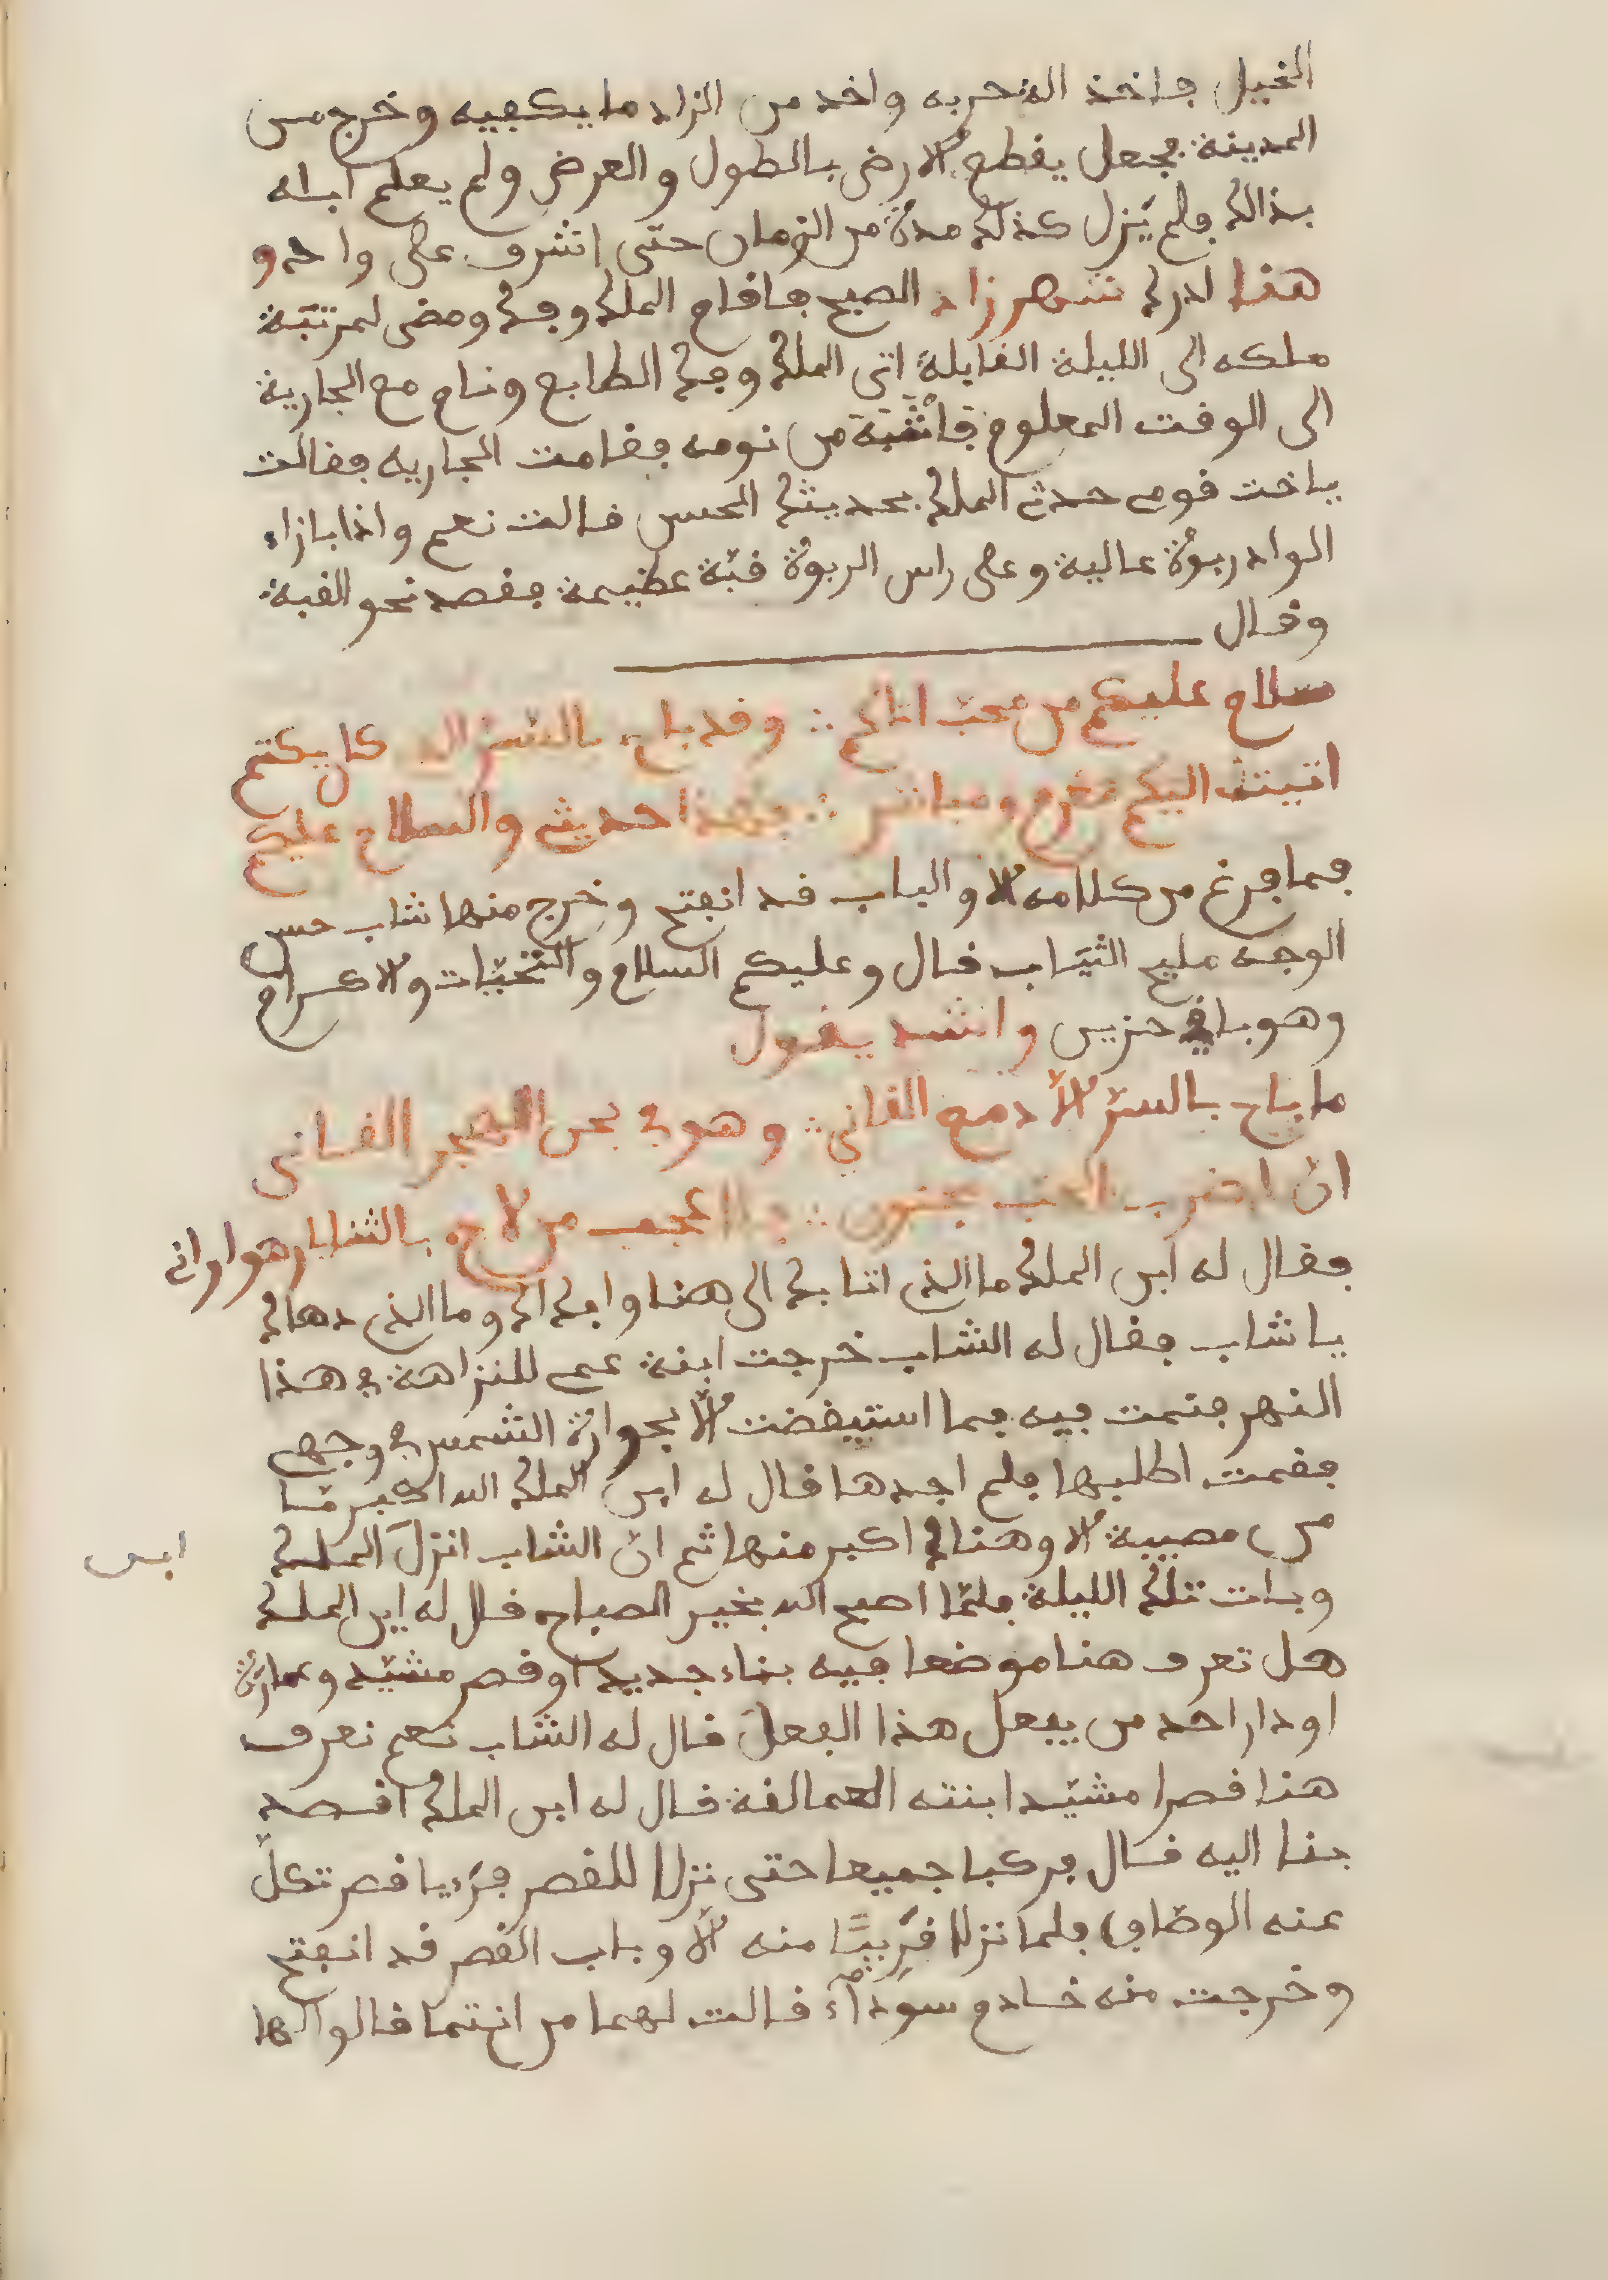 الخيل فاخذ الة حربه واخد من الزاد ما يكفيه وخرج من
المدينة فجعل يقطع الارض بالطول والعرض ولم يعلم اباه
بذالك فلم يَزل كذلك مدة من الزمان حتّى اشرف على واد و
هنا ادرك شهرزاد الصبح فاقام الملك وفك ومضى لمرتبَة
ملكه الى الليلة القابلة اتى الملك وفك الطابع ونام مع الجارية
الى الوقت المعلوم فَانْتَبَهَ من نومه فقامت الجاريه فقالت
ياخت قومى حدث الملك بحديثك الحسن قالت نعم واذا بازاء
الواد ربوة عالية وعلى راس الربوة قبّة عظيمة فقصد نحو القبة
وقال
سلام عليكم من محبّ اتاكم ∴ وقد باح بالسّر الذى كان يكتم
اتيت اليكم مغرم و ∴ فهذا حديثى والسلام عليكم
فما فرغ من كلامه الا والباب قد انفتح وخرج منها شاب حسن
الوجه مليح الثيَاب قال وعليكم السلام والتحيّات والاكرام
وهو باك حزين وانشد يقول
ما باح بالسرّ الاّ دمع القانى ∴ وهو فى بحر الهجر الفانى
انّ اضرب الحب ∴ فلا عجب من لاح بالثنايا
فقال له ابن الملك ما الذى اتا بك الى هنا وابكاك وما الذى دهاك
يا شاب فقال له الشاب خرجت ابنة عمى للنزاهة فى هذا
النهر فنمت فيه فما استيقضت الاّ بحرارة الشمس فى وجهى
فقمت اطلبها فلم اجدها قال له ابن الملك الله اكبر مّا
من مصيبة الا وهناك اكبر منها ثم انّ الشاب انزلَ الملك ابن
وبات تلك الليلة فلمّا اصبح الله بخير الصباح قال له ابن الملك
هل تعرف هنا موضعا فيه بناء جديد اوقصر مشيّد وعمارة
او دار احد من يفعل هذا الفعلَ قال له الشاب نعم نعرف
هنا قصرا مشيّدا بنته العمالقة قال له ابن الملك اقصد
بنا اليه قال فركبا جميعا حتى نزلا للقصر فرءيا قصر تكلّ
عنه الوصّاف فلما نزلا قرِيبًا منه الاّ وباب القصر قد انفتح
وخرجت منه خادم سودآء قالت لهما من انتما قالوا لها